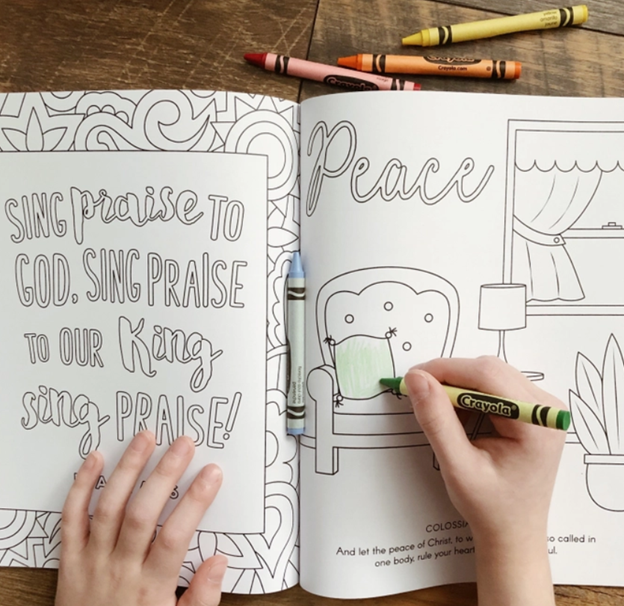 SING praise TO
GOD, SING PRAISE
TO OUR King
sing PRAISE!
Peace
Crayola
Crayola.com
Crayola
COLOSSIA
And let the peace of Christ, to w so called in
one body, rule your heart ul.